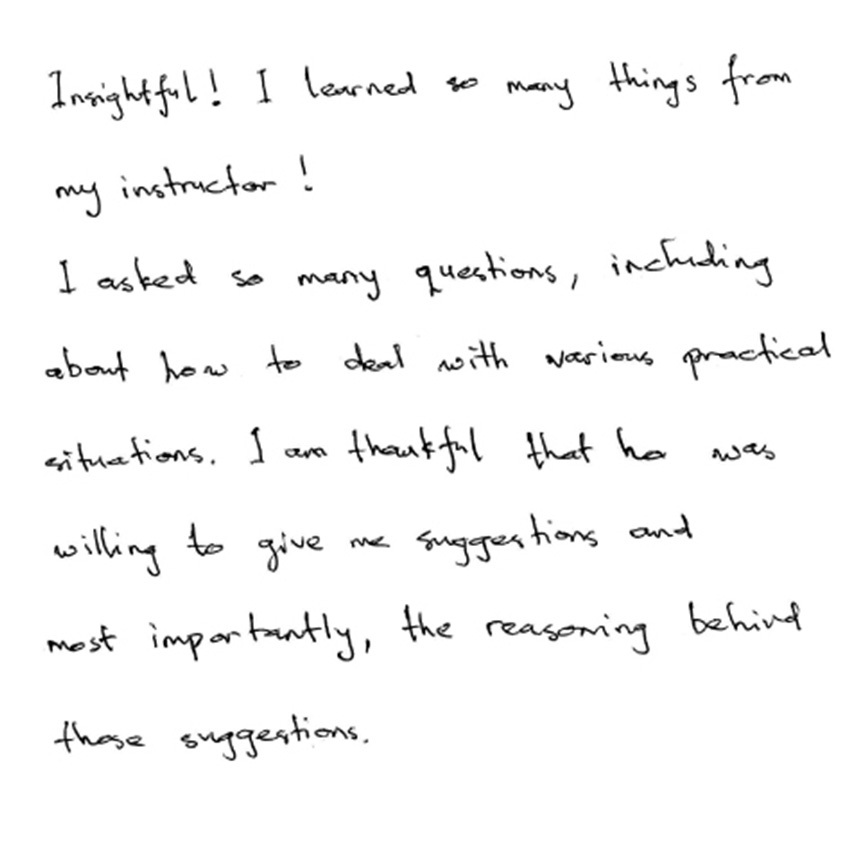 Insightful! I learned so many things from
my instructor!
I asked so many questions, including
about how to deal with various practical
situations. I am thankful that he was
willing to give me suggestions and
most importantly, the reasoning behind
those suggestions.